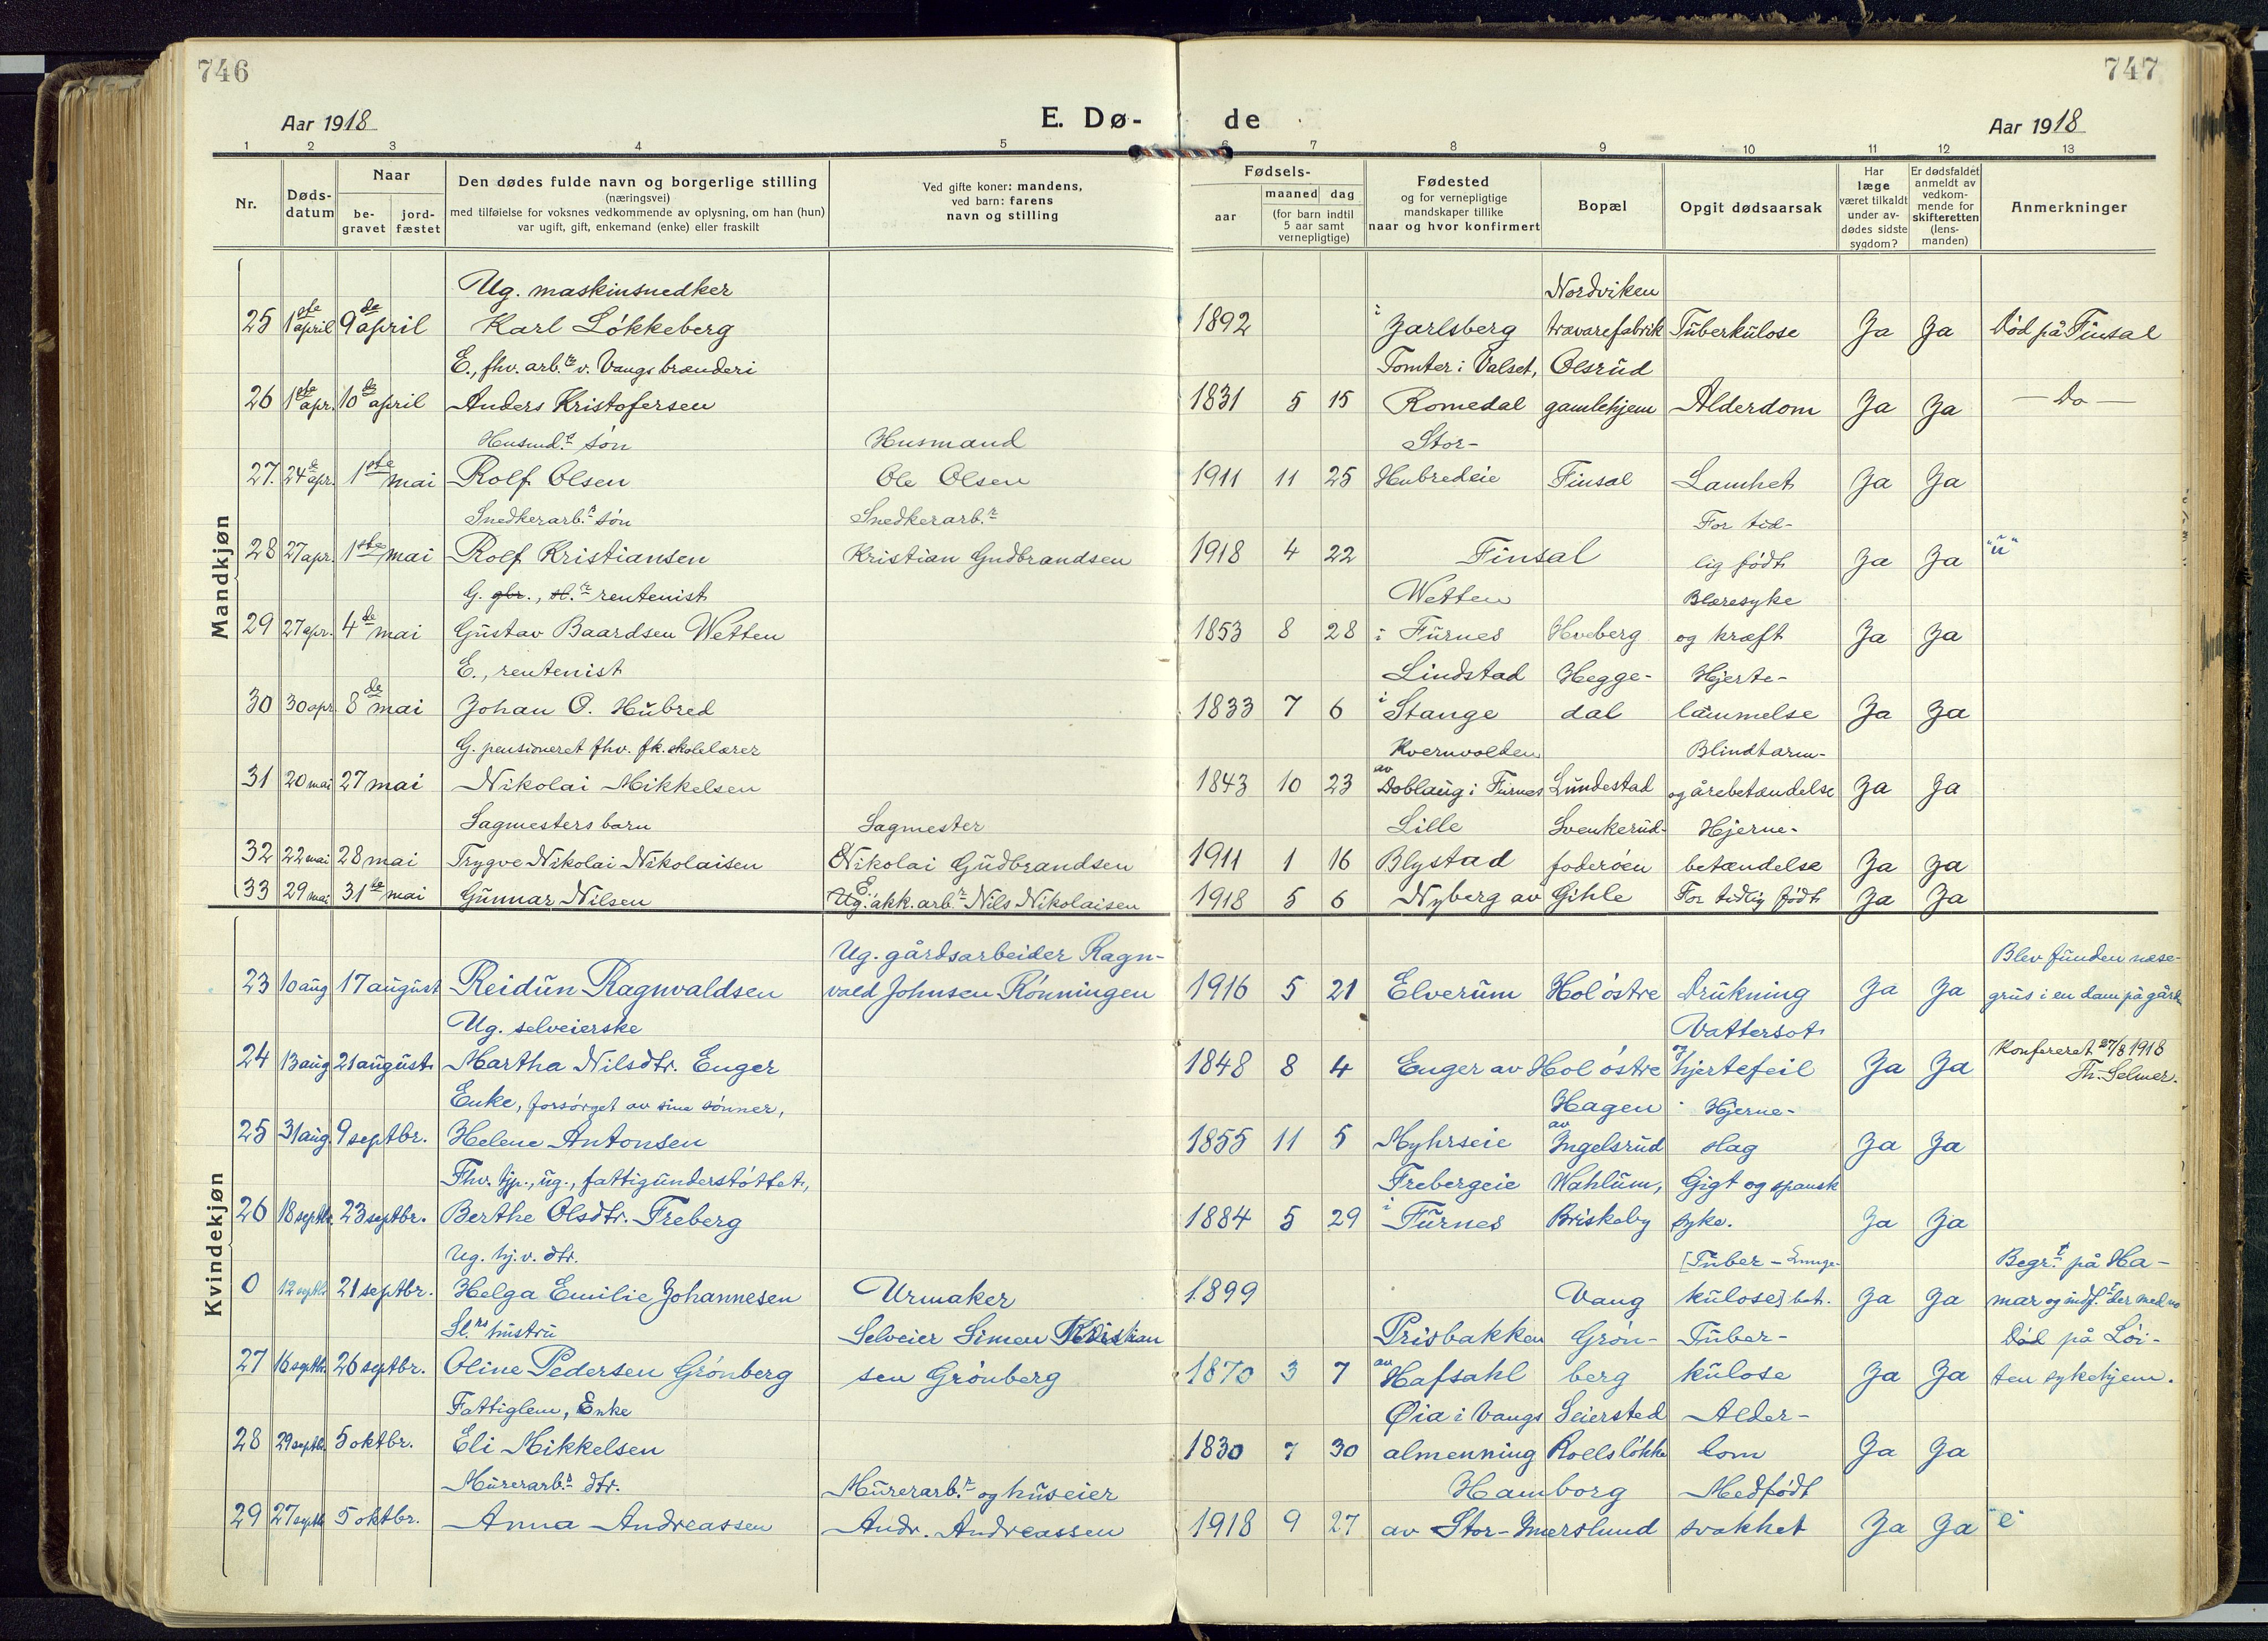 746
747
Aar 1918
E. Dø-
de
Aar 1918
1 2 3 4 5 6 7 8 9 10 11 12 13
Nr.
Døds-
datum
Naar
be-
gravet
jord-
fæstet
Den dødes fulde navn og borgerlige stilling
(næringsvei)
med tilføielse for voksnes vedkommende av oplysning, om han (hun)
var ugift, gift, enkemand (enke) eller fraskilt
Ved gifte koner: mandens,
ved barn: farens
navn og stilling
Fødsels-
aar
maaned dag
(for barn indtil
5 aar samt
vernepligtige)
Fødested
og for vernepligtige
mandskaper tillike
naar og hvor konfirmert
Bopæl
Opgit dødsaarsak
Har
læge
været tilkaldt
under av-
dødes sidste
sygdom?
Er dødsfaldet
anmeldt av
vedkom-
mende for
skifteretten
(lens-
manden)
Anmerkninger
Mandkjøn
Ug. maskinsnedker Nordviken
25 1ste april 9de april Karl Løkkeberg 1892 i Jarlsberg trævarefabrik Tuberkulose Ja Ja Død på Finsal
E., fhv. arb.r v. Vangs brænderi Tomter i Valset, Olsrud
26 1ste apr. 10de april Anders Kristofersen 1831 5 15 Romedal gamlehjem Alderdom Ja Ja — Do —
Husmds. søn Husmand Stor-
27. 24de apr. 1ste mai Rolf Olsen Ole Olsen 1911 11 25 Hubredeie Finsal Lamhet Ja Ja
Snedkerarb.s søn Snedkerarb.r For tid-
28 27 apr. 1ste mai Rolf Kristiansen Kristian Gudbrandsen 1918 4 22 Finsal lig født Ja Ja "u"
G. gbr., rentenist Wetten Blæresyke
29 27 apr. 4de mai Gustav Baardsen Wetten 1853 8 28 i Furnes Hveberg og kræft Ja Ja
E., rentenist Lindstad Hegge- Hjerte-
30 30 apr. 8de mai Johan O. Hubred 1833 7 6 i Stange dal lammelse Ja Ja
G. pensioneret fhv. fk. skolelærer Kvernvolden Blindtarm-
31 20 mai 27 mai Nikolai Mikkelsen 1843 10 23 av Doblaug i Furnes Lundestad og årebetændelse Ja Ja
Sagmesters barn Sagmester Lille Svenkerud- Hjerne-
32 22 mai 28 mai Trygve Nikolai Nikolaisen Nikolai Gudbrandsen 1911 1 16 Blystad foderøen betændelse Ja Ja
33 29 mai 31te mai Gunnar Nilsen E. Ug. akk. arb.r Nils Nikolaisen 1918 5 6 Nyberg av Gihle For tidlig født Ja Ja
Kvindekjøn
Ug. gårdsarbeider Ragn- Blev funden næse-
23 10 aug 17 august Reidun Ragnvaldsen vald Johnsen Rønningen 1916 5 21 Elverum Hol østre Drukning Ja Ja grus i en dam på gård
Ug. selveierske Vattersot
24 13 aug 21 august Martha Nilsdtr. Enger 1848 8 4 Enger av Hol østre og hjertefeil Ja Ja Konfereret 27/8 1918
Th. Selmer.
Enke, forsørget av sine sønner, Hagen Hjerne-
25 31 aug. 9 septbr. Helene Antonsen 1855 11 5 Myhrseie av Ingelsrud slag Ja Ja
Fhv. tjp., ug., fattigunderstøttet, Frebergeie Wahlum, Gigt og spansk
26 18 septb. 23 septbr. Berthe Olsdtr. Freberg 1884 5 29 i Furnes Briskeby syke. Ja Ja
Ug. hj. v. dtr. [Tuber- Lunge- Begr.t på Ha-
0 12 septb. 21 septbr. Helga Emilie Johannesen Urmaker 1899 Vang kulose] bet. Ja Ja mar og indf.t der med no
Sl.rs hustru Selveier Simen Kristian Prisbakken Grøn- Tuber- Død på Løi-
27 16 septb. 26 septbr. Oline Pedersen Grønberg sen Grønberg 1870 3 7 av Hafsahl berg kulose Ja Ja ten sykehjem.
Fattiglem, Enke Øia i Vangs Seiersted Alder-
28 29 septb. 5 oktbr. Eli Mikkelsen 1830 7 30 almenning Rollsløkke dom Ja Ja
Murerarb.s dtr. Murerarb.r og huseier Hamborg Medfødt
29 27 septb 5 oktbr. Anna Andreassen Andr. Andreassen 1918 9 27 av Stor-Imerslund svakhet Ja Ja "e"